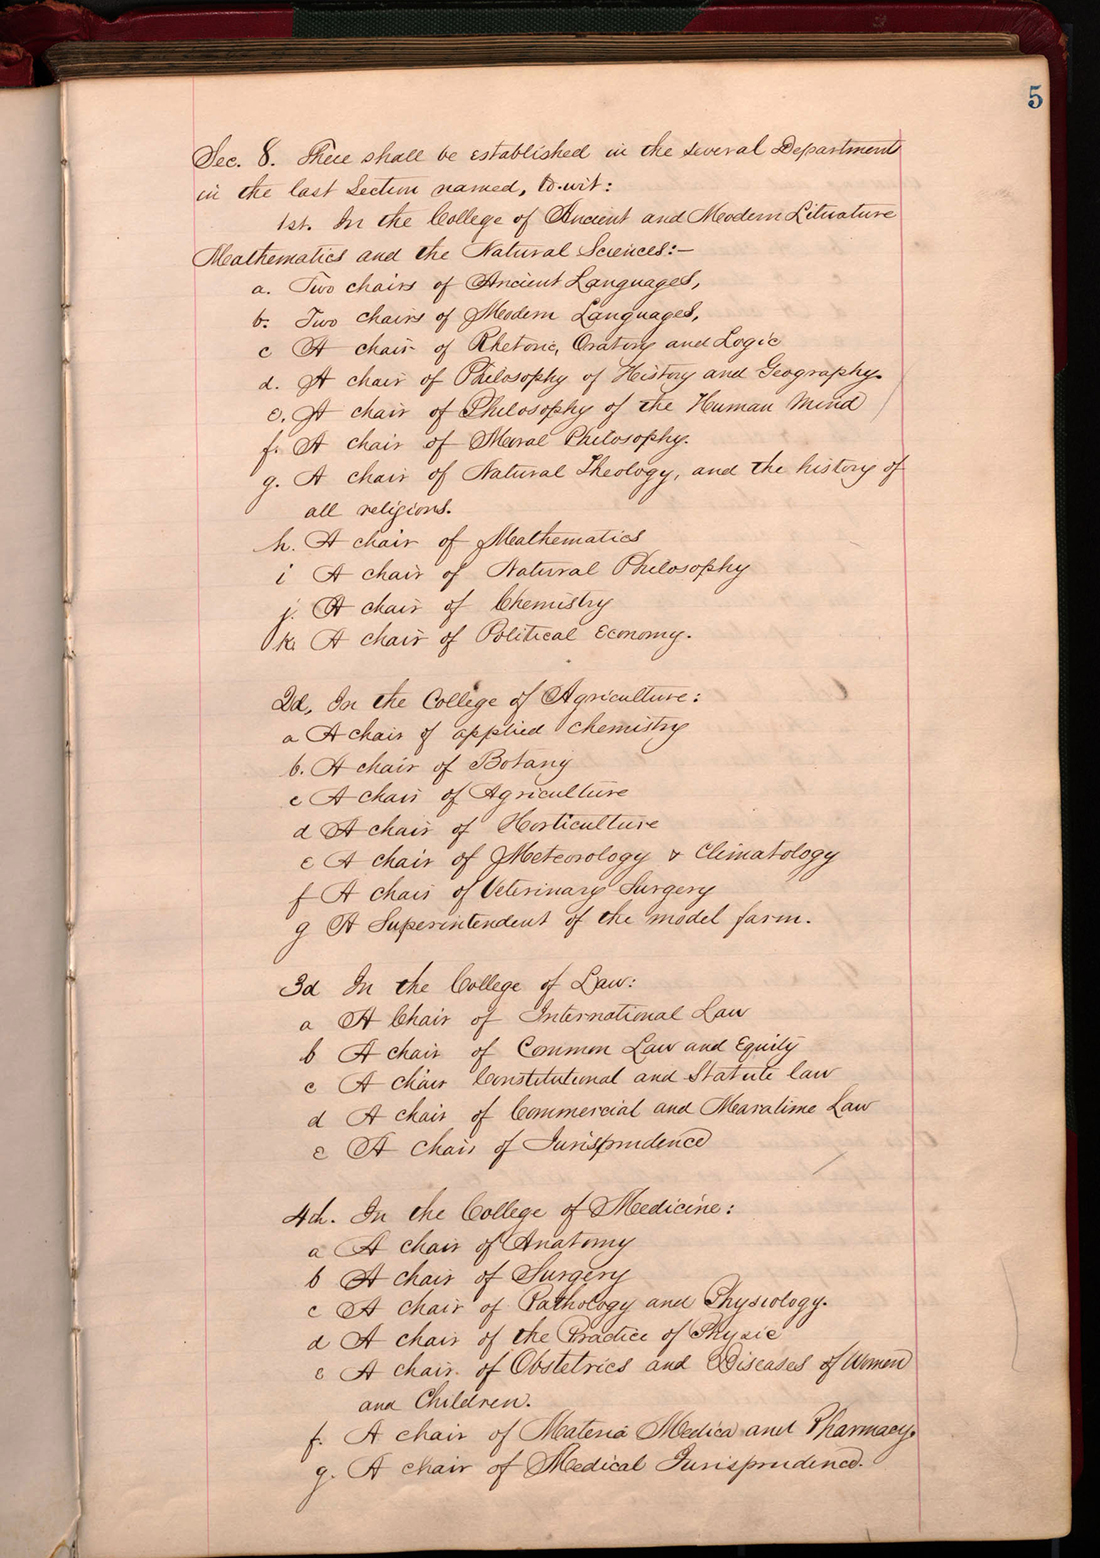 5
Sec. 8. There shall be established in the several Departments
in the last Section named, to-wit:
1st. In the College of Ancient and Modern Literature
Mathematics and the Natural Sciences:—
a. Two chairs of Ancient Languages,
b. Two chairs of Modern Languages,
c A chair of Rhetoric, Oratory and Logic
d. A chair of Philosophy of History and Geography.
e. A chair of Philosophy of the Human Mind
f. A chair of Moral Philosophy.
g. A chair of Natural Theology, and the history of
all religions.
h. A chair of Mathematics
i A chair of Natural Philosophy
j. A chair of Chemistry
k. A chair of Political Economy.
2d, In the College of Agriculture:
a A chair of applied Chemistry
b. A chair of Botany
c A chair of Agriculture
d A chair of Horticulture
e A chair of Meteorology & Climatology
f A chair of Veterinary Surgery
g A Superintendent of the model farm.
3d In the College of Law:
a A Chair of International Law
b A chair of Common Law and Equity
c A chair Constitutional and Statute law
d A chair of Commercial and Maratime Law
e A chair of Jurisprudence
4th. In the College of Medicine:
a A chair of Anatomy
b A chair of Surgery
c A chair of Pathology and Physiology.
d A chair of the Practice of Physic
e A chair of Obstetrics and Diseases of Women
and Children.
f. A chair of Materia Medica and Pharmacy.
g. A chair of Medical Jurisprudence.